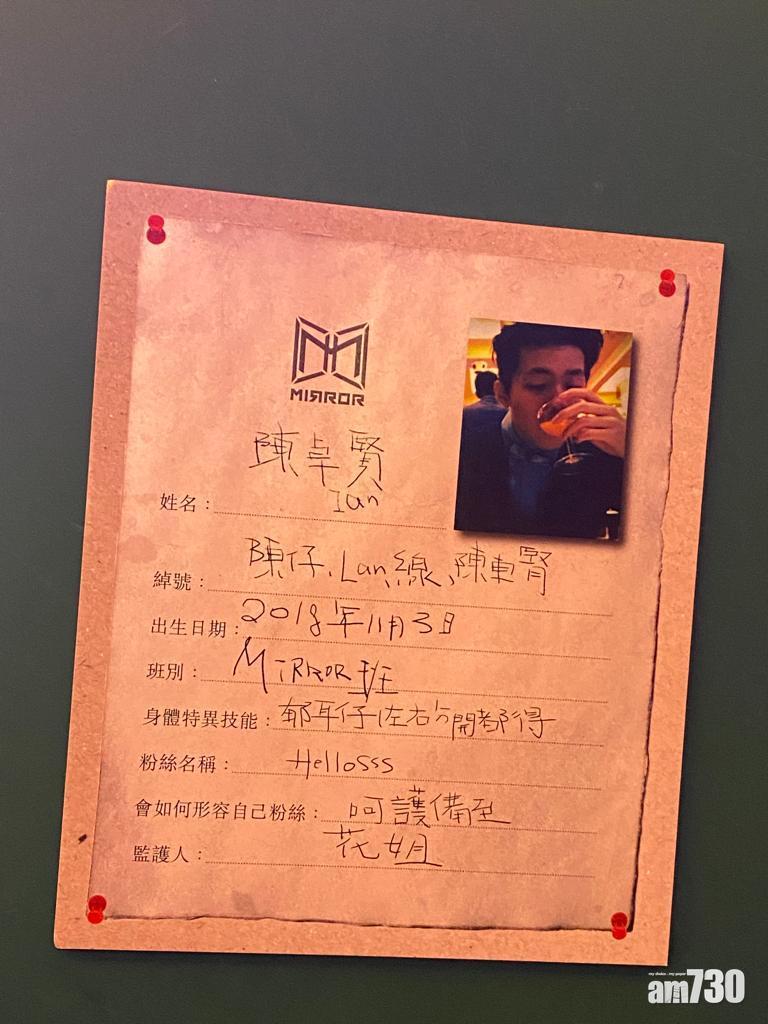 MIRROR
陳卓賢
姓名：Ian
綽號：陳仔、Lan、線、陳車腎
出生日期：2018年11月3日
班別：MIRROR班
身體特異技能：郁耳仔左右分開都得
粉絲名稱：Hellosss
會如何形容自己粉絲：呵護備至
監護人：花姐
my choice . my paper
am730